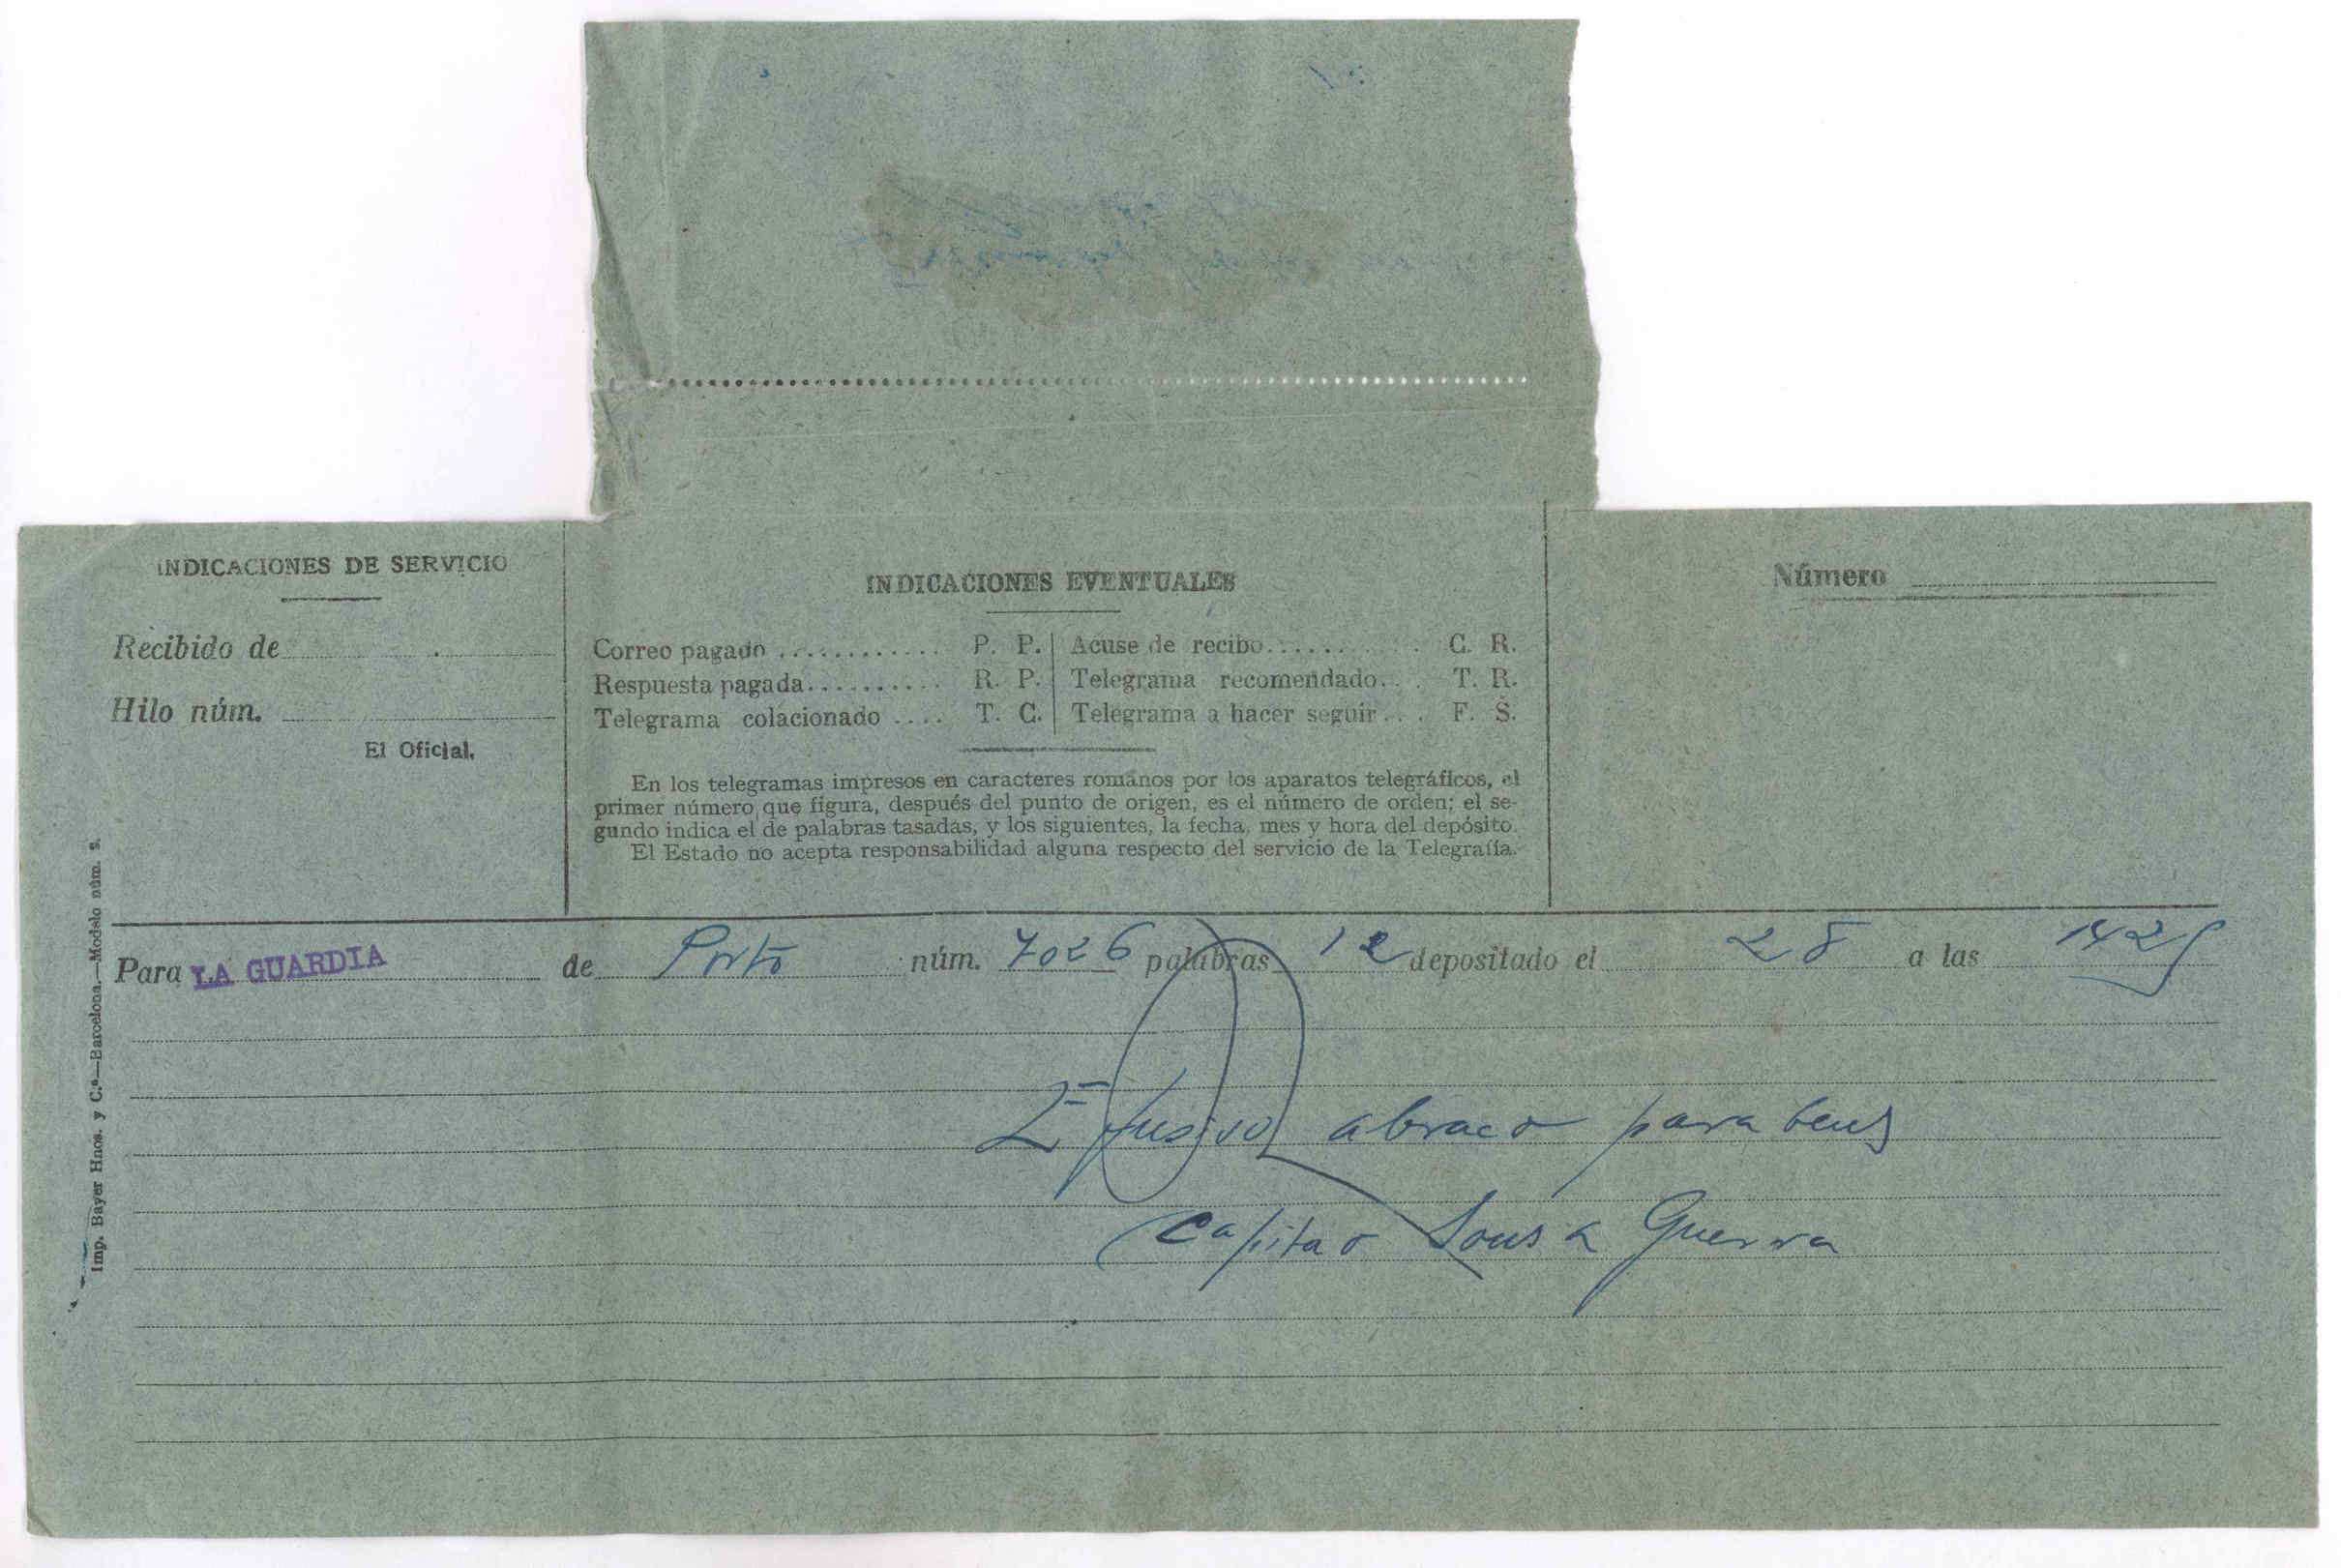 INDICACIONES DE SERVICIO
Recibido de
Hilo núm.
El Oficial.
INDICACIONES EVENTUALES
Correo pagado ............ P. P.
Respuesta pagada.......... R. P.
Telegrama colacionado .... T. C.
Acuse de recibo.......... C. R.
Telegrama recomendado... T. R.
Telegrama a hacer seguir... F. S.
En los telegramas impresos en caracteres romanos por los aparatos telegráficos, el
primer número que figura, después del punto de origen, es el número de orden; el se-
gundo indica el de palabras tasadas, y los siguientes, la fecha, mes y hora del depósito.
El Estado no acepta responsabilidad alguna respecto del servicio de la Telegrafía.
Número
Imp. Bayer Hnos. y C.ª—Barcelona.—Modelo núm. 8.
Para LA GUARDIA de Porto núm. 7026 palabras 12 depositado el 28 a las 1425
Efusivo abraco parabens
Capitao Sousa Guerra